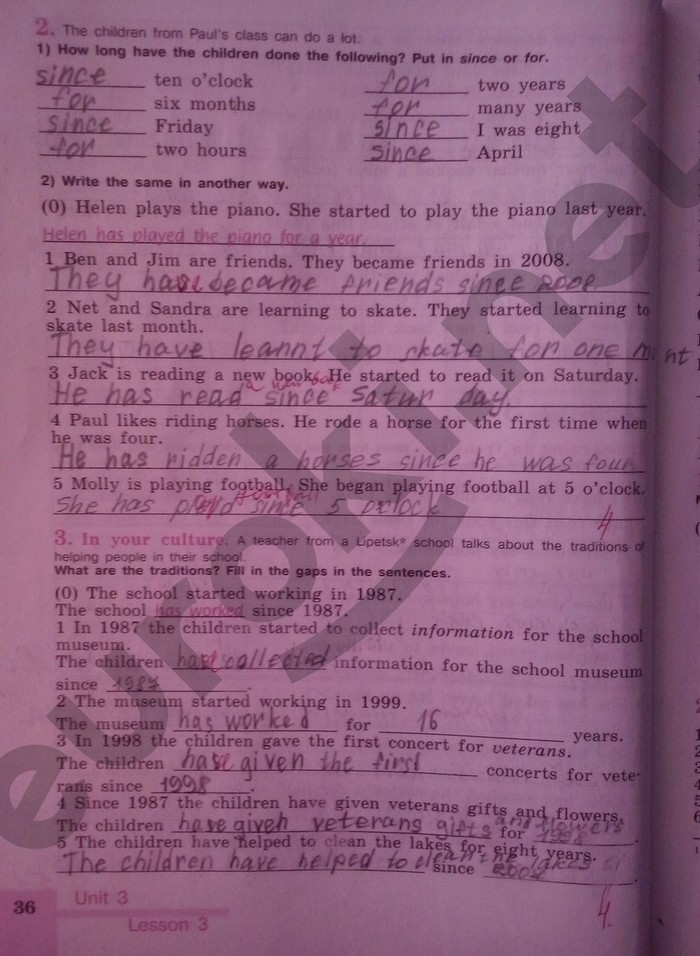 2. The children from Paul's class can do a lot.
1) How long have the children done the following? Put in since or for.
since ten o'clock for two years
for six months for many years
since Friday since I was eight
for two hours since April
2) Write the same in another way.
(0) Helen plays the piano. She started to play the piano last year.
Helen has played the piano for a year.
1 Ben and Jim are friends. They became friends in 2008.
They have became friends since 2008
2 Net and Sandra are learning to skate. They started learning to
skate last month.
They have leannt to skate for one mont
3 Jack is reading a new book. He started to read it on Saturday.
a new book
He has read since Satur day.
4 Paul likes riding horses. He rode a horse for the first time when
he was four.
He has ridden a horses since he was four
5 Molly is playing football. She began playing football at 5 o'clock.
football
She has played since 5 o'clock
4
3. In your culture. A teacher from a Lipetsk* school talks about the traditions of
helping people in their school.
What are the traditions? Fill in the gaps in the sentences.
(0) The school started working in 1987.
The school has worked since 1987.
1 In 1987 the children started to collect information for the school
museum.
The children have collected information for the school museum
since 1987.
2 The museum started working in 1999.
The museum has worked for 16 years.
3 In 1998 the children gave the first concert for veterans.
The children have given the first concerts for vete-
rans since 1998.
4 Since 1987 the children have given veterans gifts and flowers.
The children have given veterans gifts and flowers for
5 The children have helped to clean the lakes for eight years.
The children have helped to clean the lakes since
4.
36
Unit 3
Lesson 3
euroki.net